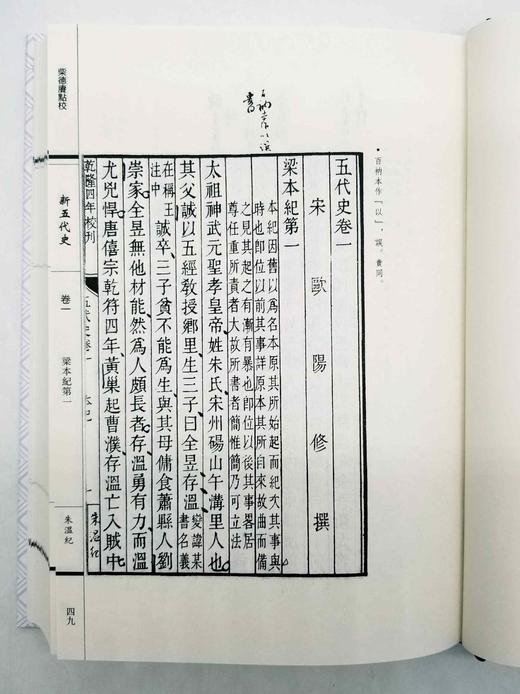 • 百衲本作「以」，誤。貴同。
百衲作以誤
五代史卷一
宋 歐陽修 撰
梁本紀第一
本紀因舊以爲名本原其所始起而紀次其事與
時也即位以前其事詳原本其所自來故曲而備
之見其起之有漸有暴也即位以後其事畧居
尊任重所責者大故所書者簡惟簡乃可立法
太祖神武元聖孝皇帝姓朱氏宋州碭山午溝里人也
其父誠以五經教授鄉里生三子曰全昱存溫變諱某書名義
在稱王注中誠卒三子貧不能爲生與其母傭食蕭縣人劉
崇家全昱無他材能然爲人頗長者存溫勇有力而溫
尤兇悍唐僖宗乾符四年黃巢起曹濮存溫亡入賊中
乾隆四年校刊
五代史卷一 本紀 一
朱溫紀
柴德賡點校
新五代史
卷一
梁本紀第一
朱溫紀
四九